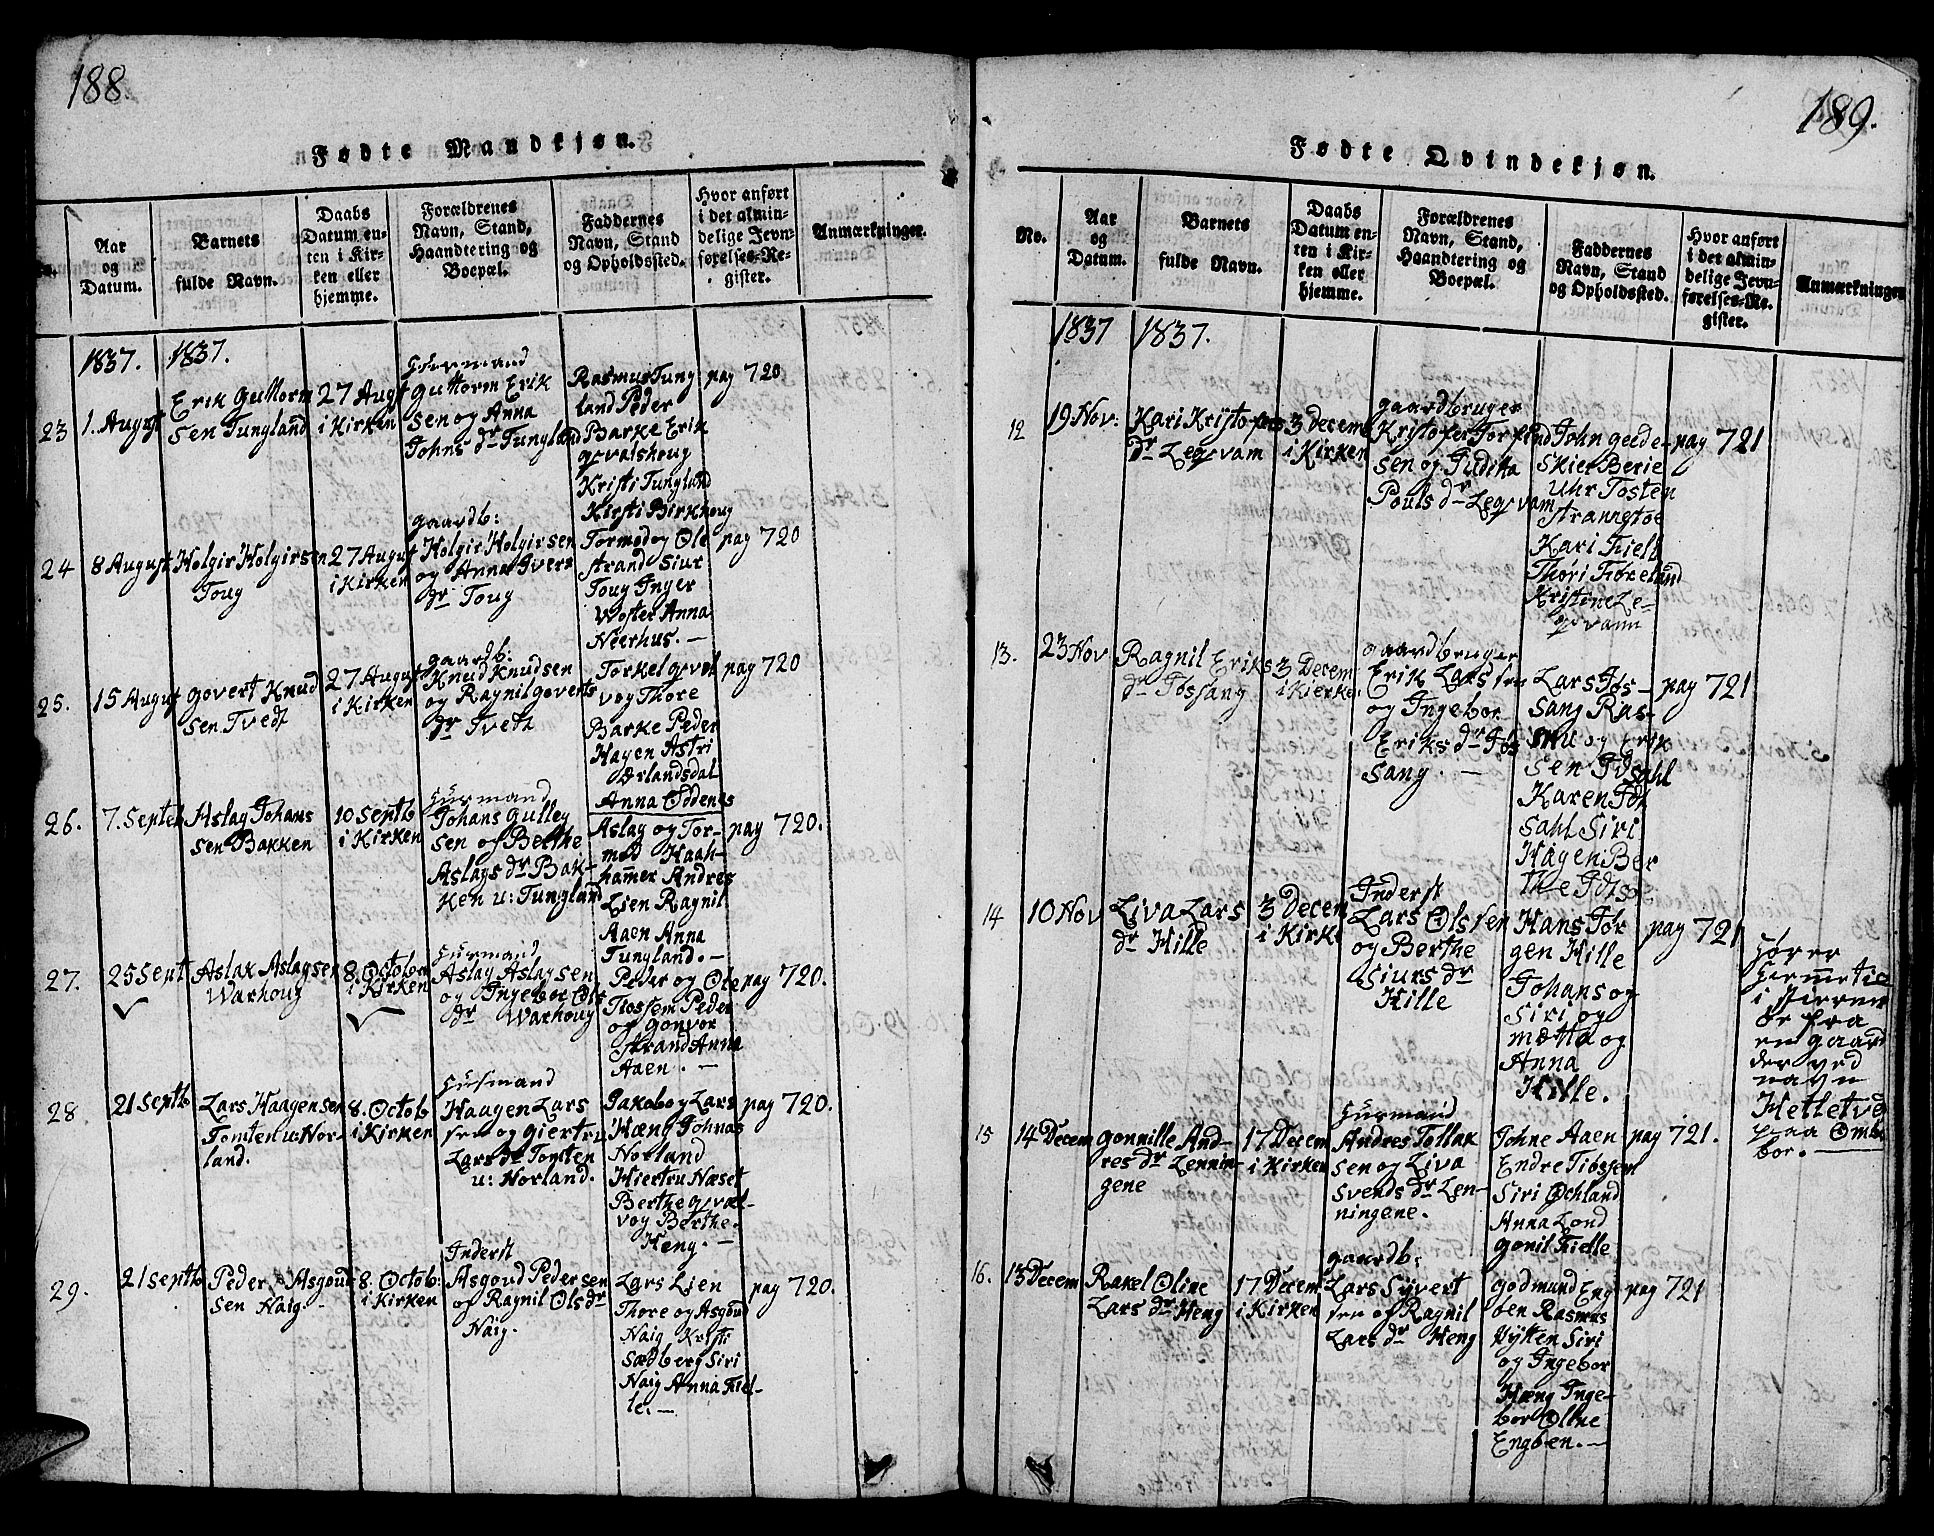 188.
Fødte Mandkjøn.
Aar og Datum.
Barnets fulde Navn.
Daabs Datum enten i Kirken eller hjemme.
Forældrenes Navn, Stand, Haandtering og Boepæl.
Faddernes Navn, Stand og Opholdssted.
Hvor anført i det almindelige Jevnførelses-Register.
Anmærkninger.
1837.
1837.
23
1. August
Erik Guttorm
sen Tungland
27 Augt
i Kirken
Huusmand
Guttorm Erik
sen og Anna
Johns dr Tungland
Rasmus Tung
land Peder
Barke Erik
Qvalshoug
Kristi Tungland
Kirsti Birkhoug
pag 720
24
8 August
Holgir Holgirsen
Toug
27 August
i Kirken
gaardb:
Holgir Holgirsen
og Anna Ivers
dr Toug
Tormod og Ole
strand Siur
Toug Inger
Woster Anna
Neerhus. —
pag 720
25.
15 August
Govert Knud
sen Tvedt
27 August
i Kirken
gaardb:
Knud Knudsen
og Ragnil Goverts
dr Tveth
Torkel Qvel
vog Thore
Barke Peder
Hagen Astri
Ørlandsdal
Anna Oddenes
pag 720
26.
7. Septeb
Aslag Johans
sen Bakken
10 Septb
i Kirken
Huusmand
Johans Gulleg
sen of Berthe
Aslags dr Bak-
ken u: Tungland
Aslag og Tor-
mod Haah-
hammer Andres
Lien Ragnil
Aaen Anna
Tungland. —
pag 720.
27.
25 Sept
Aslak Aslagsen
Warhoug
8. Octobr
i Kirken
Huusmand
Aslag Aslagsen
og Ingebor Ols
dr Warhoug
Peder og Ole
Flossem Peder
og Gonvor
strand Anna
Aaen. —
pag 720.
28.
21 Septb
Lars Haagensen
Tomten u: Nor-
land.
8. Octob
i Kirken
Husmand
Haagen Lars
sen og Giertru
Lars dr Tomten
u: Norland.
Jakob og Lars
Hæng Johnas
Norland
Hiertru Næset
Berthe Qvæl-
vog Berthe.
Heng. —
pag 720.
29.
21 Septb
Peder Asgoud
sen Naig. -
8. Octob:
i Kirken
Inderst
Asgoud Pedersen
of Ragnil Ols dr
Naig.
Lars Lien
Thore og Asgoud
Naig Kristi
Sædberg Siri
Naig Anna Fiel-
le. —
pag 720.
189.
Fødte Qvindekjøn.
No.
Aar og Datum.
Barnets fulde Navn.
Daabs Datum enten i Kirken eller hjemme.
Forældrenes Navn, Stand, Haandtering og Boepæl.
Faddernes Navn, Stand og Opholdssted.
Hvor anført i det almindelige Jevnførelses-Register.
Anmærkninger
1837
1837.
12
19 Nov:
Kari Kristofers
dr Leqvam
3 Decem
i Kirken
gaardbruger
Kristofer Torfind
sen og Judita
Pouls dr Leqvam
John geede-
skier Berie
Uhr Tosten
strannstøe
Kari Fiell
Thøri Fiøreland
Kristine Le-
qvam
pag 721
13.
23 Nov
Ragnil Eriks
dr Jøssang
3 Decem
i Kierke
gaardbruger
Erik Lars sen
og Ingebor
Eriks dr Jøs
sang. —
Lars Jøs-
sang Ras-
mu og Erik
sen Idsahl
Karen Idt
sahl Siri
Hagen Ber
the Idts
pag 721
14
10 Nov
Liva Lars
dr Hille
3 Decem
i Kirke
Inderst
Lars Olssen
og Berthe
Siurs dr
Hille
Hans Jør
gen Hille
Johans og
Siri og
mætta og
Anna
Hille.
pag 721
Hører
Hiemme
i stierne
ør fra
en gaard
der ved
navn
Hetletve
paa Omb
bor. —
15
14 Decem
Gonnille And-
res dr Lennin-
gene
17 Decem
i Kirken
Huusmand
Andres Tollak
sen og Liva
Svends dr Len-
ningene.
Johne Aaen
Endre Tiøssem
Siri Ochland
Anna Lond
Gonil Fielle
pag 721.
16.
13 Decem
Rakel Oline
Lars dr Heng
17 Decem
i Kirken
gaardb:
Lars Syvert
sen of Ragnil
Lars dr Heng
Godmund Eng
ben Rasmus
Vyken Siri
og Ingebor
Hæng Inge-
bor Olene
Engben. —
pag 721